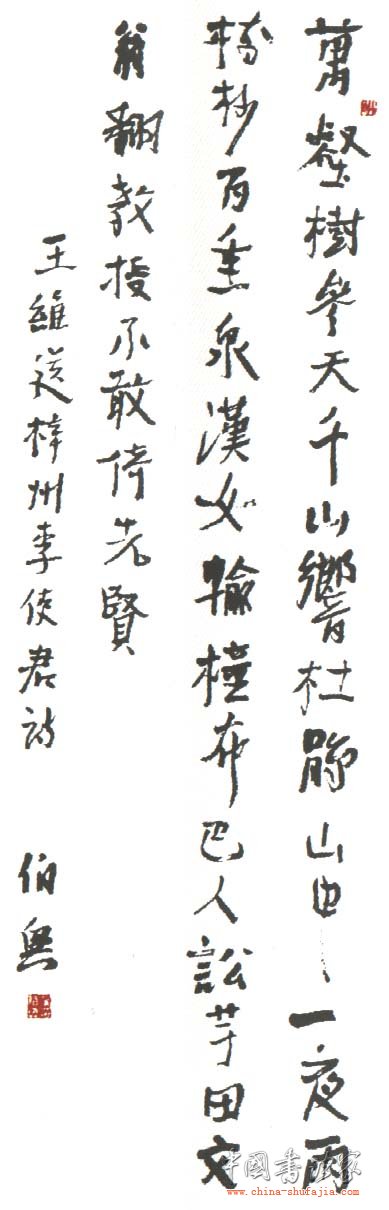 萬壑樹參天千山響杜鵑山中一夜雨
樹杪百重泉漢女輸橦布巴人訟芋田文
翁翻教授不敢倚先賢
王維送梓州李使君詩 伯
中國書法家
www.china-shufajia.com